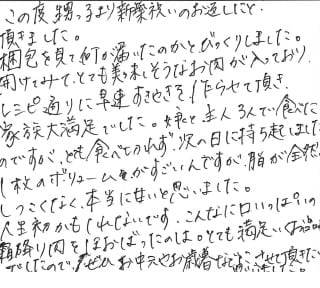 この度 甥っこより新築祝いのお返しだと
頂きました。
梱包を見て何が届いたのかとびっくりしました。
開けてみて、とても美味しそうなお肉が入っており、
レシピ通りに早速すきやきを
家族大満足でした。娘と主人3人で食べた
のですが、とても食べてくれず、次の日に持ち起しました
1枚のボリュームもがすごいんですが、脂が全然
しつこくなく、本当に甘いと思いました。
人生初かもしれないです。こんなに口いっぱいの
霜降り肉をほおばったのは。とても満足いく
でしたので、ぜひお中元やお歳暮など させて頂きたい